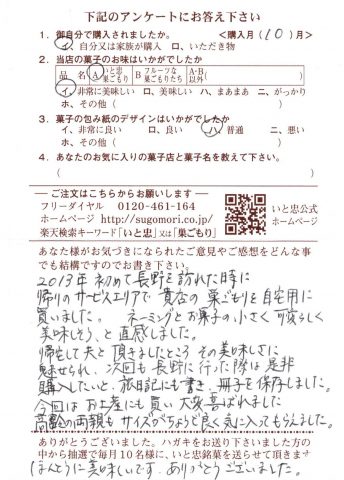 下記のアンケートにお答え下さい
1. 御自分で購入されましたか。 <購入月(10)月>
イ、自分又は家族が購入 ロ、いただき物
2. 当店の菓子のお味はいかがでしたか
品 名 A いと忠巣ごもり B フルーツな巣ごもりたち A・B以外( )
イ、非常に美味しい ロ、美味しい ハ、まあまあ ニ、がっかり
ホ、その他( )
3. 菓子の包み紙のデザインはいかがでしたか
イ、非常に良い ロ、良い ハ、普通 ニ、悪い
ホ、その他( )
4. あなたのお気に入りの菓子店と菓子名を教えて下さい。
( )
ご注文はこちらからお願いします
フリーダイヤル 0120-461-164
ホームページ http://sugomori.co.jp/
楽天検索キーワード「いと忠」又は「巣ごもり」
いと忠公式
ホームページ
あなた様がお気づきになられたご意見やご感想をどんな事
でも結構ですのでお書き下さい。
2013年 初めて長野を訪れた時に
帰りのサービスエリアで 貴店の 巣ごもりを自宅用に
買いました。 ネーミングとお菓子の小さく可愛らしく
美味しそう、と直感しました。
帰宅して夫と頂きましたところ その美味しさに
魅せられ、次回も長野に行った際は是非
購入したいと、旅日記にも書き、冊子を保存しました。
今回は お土産にも買い 大変喜ばれました
高齢の両親も サイズがちょうど良く 気に入ってもらえました。
ありがとうございました。ハガキをお送り下さいました方の
中から抽選で毎月10名様に、いと忠銘菓を送らせて頂きます
ほんとうに美味しいです。ありがとうございました。